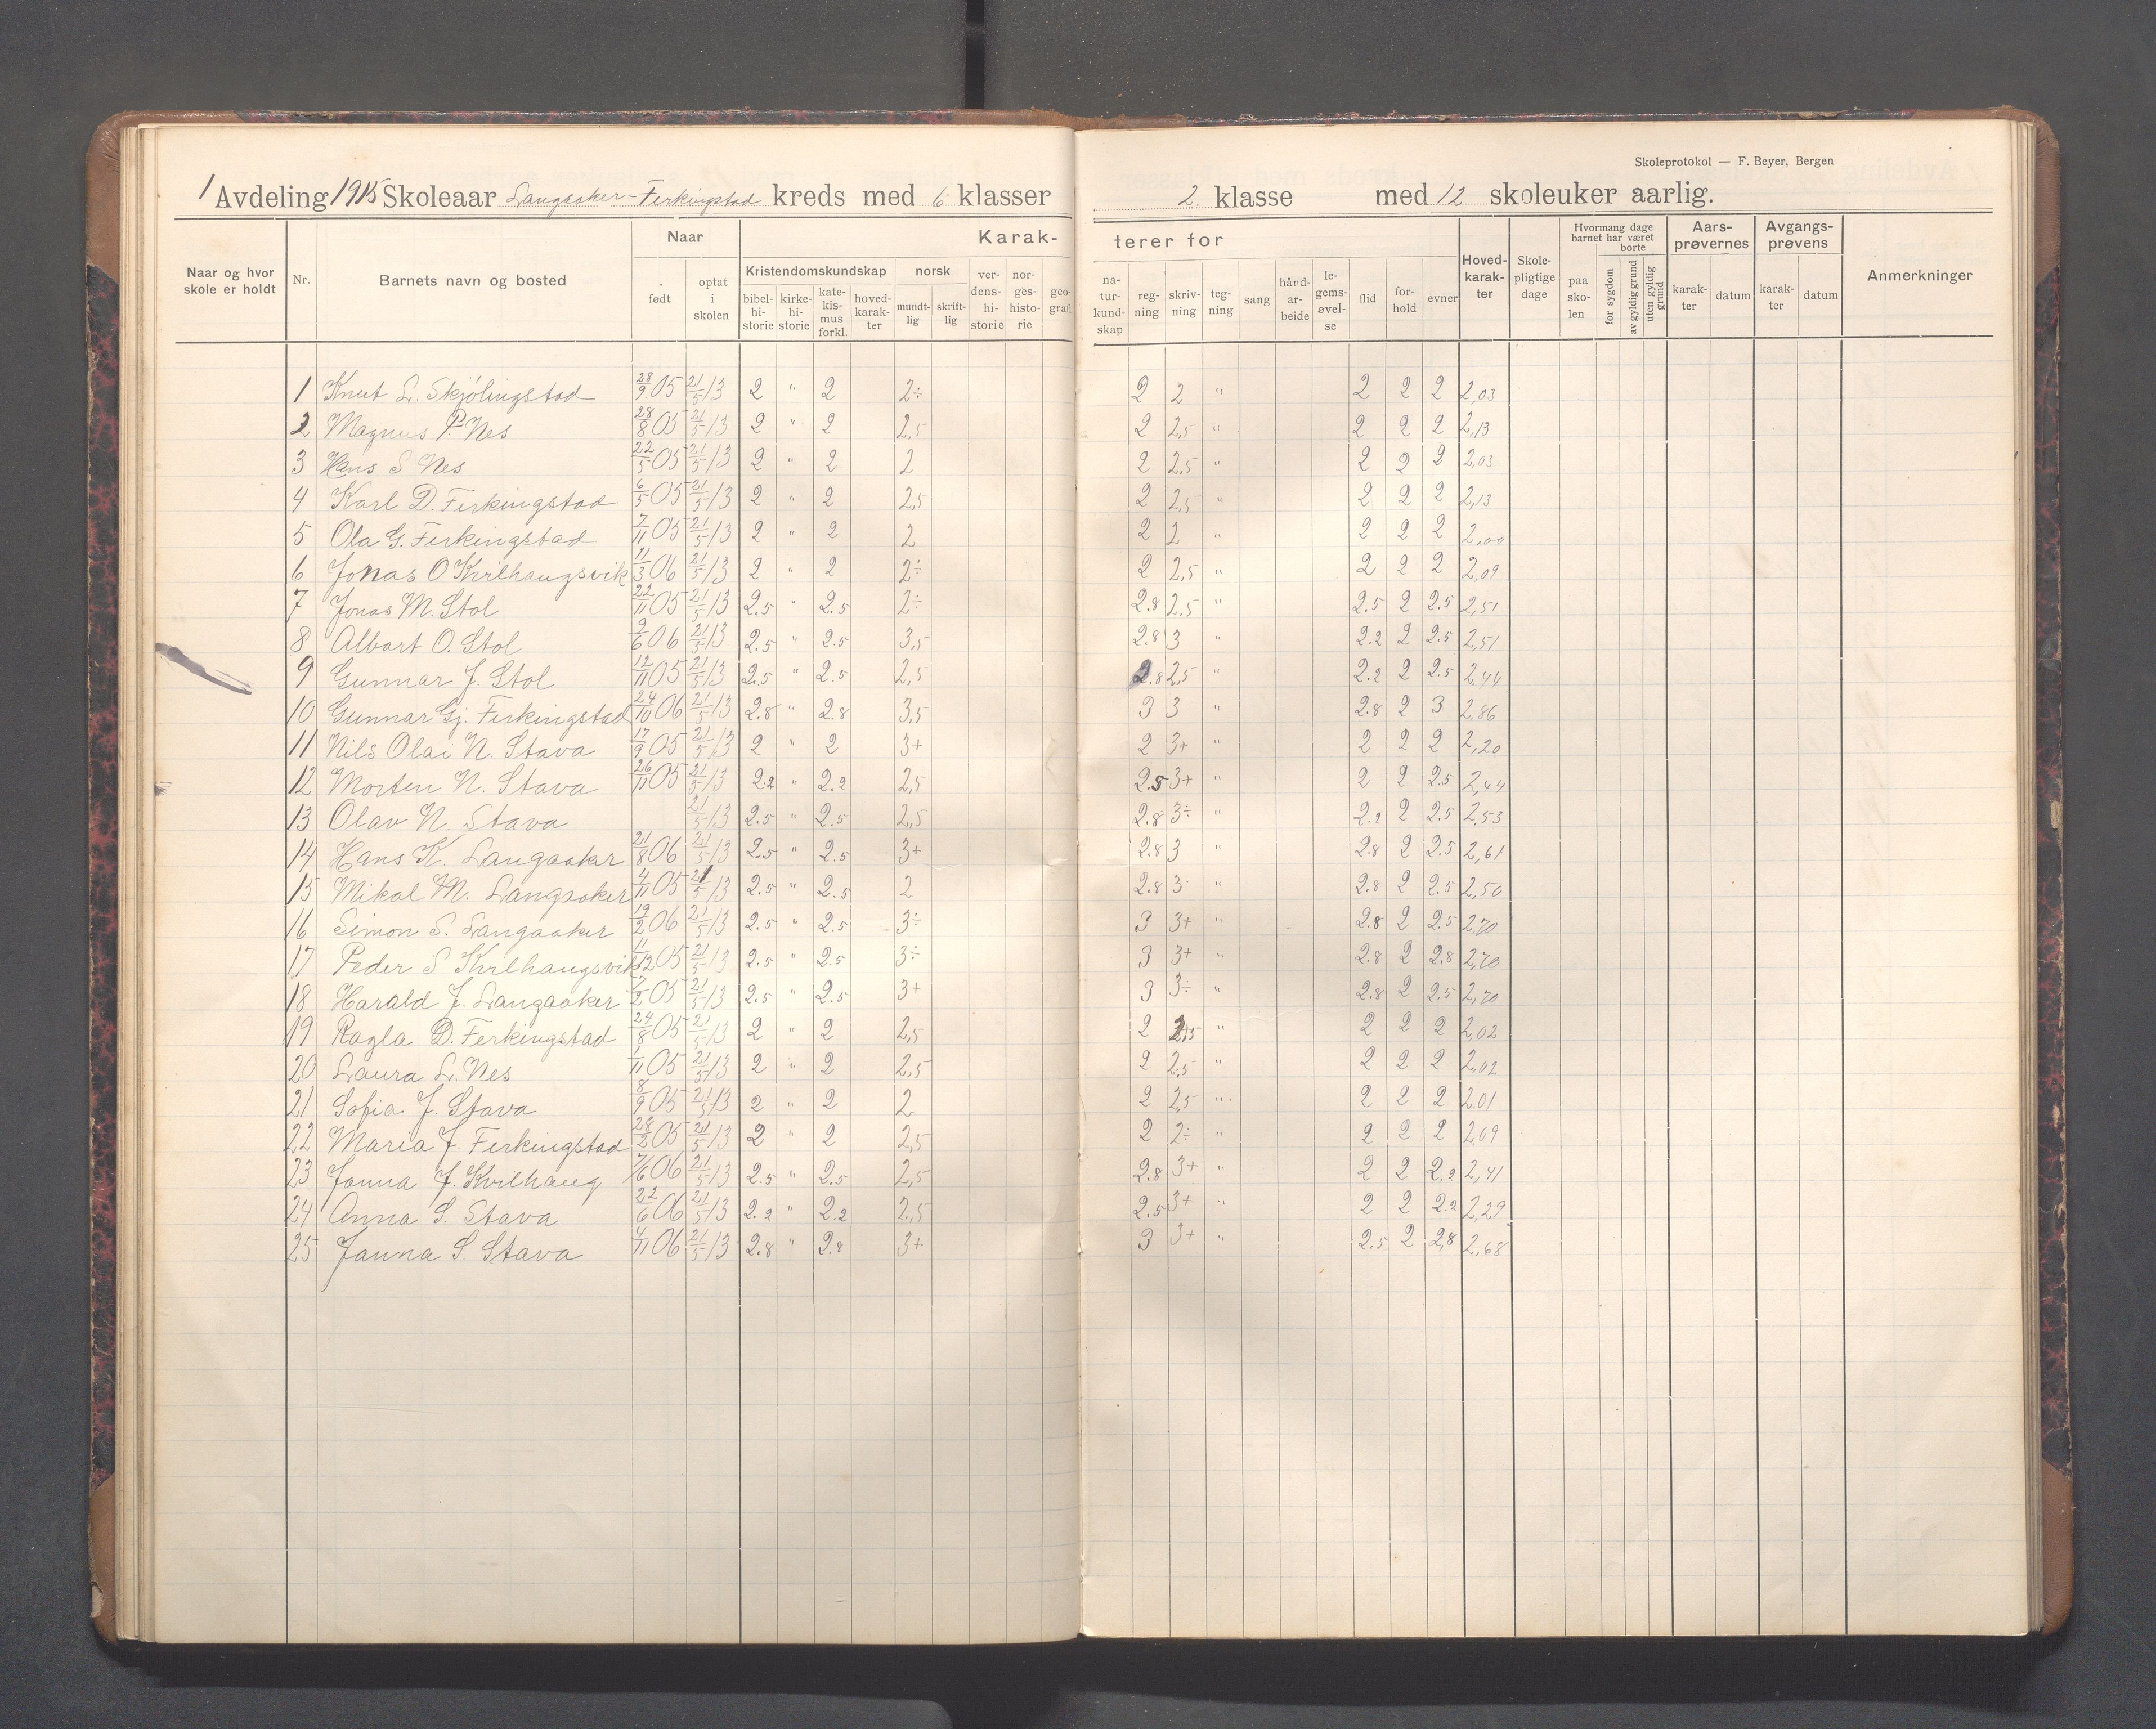 Skoleprotokol — F. Beyer, Bergen
1 Avdeling 1915 Skoleaar Langaaker-Ferkingstad kreds med 6 klasser 2. klasse med 12 skoleuker aarlig.
Naar og hvor skole er holdt Nr. Barnets navn og bosted Naar født optat i skolen Karakterer for Kristendomskundskap bibelhistorie kirkehistorie katekismus forkl. hovedkarakter norsk mundtlig skriftlig verdenshistorie norgeshistorie geografi naturkundskap regning skrivning tegning sang håndarbeide legemsøvelse flid forhold evner Hovedkarakter Skolepligtige dage Hvormang dage barnet har været paa skolen borte for sygdom av gyldig grund uten gyldig grund Aarsprøvernes karakter datum Avgangsprøvens karakter datum Anmerkninger
1 Knut L. Skjölingstad 28/9 05 21/5 13 2 " 2 2÷ 2 2 " 2 2 2 2,03
2 Magnus P. Nes 28/8 05 21/5 13 2 " 2 2,5 2 2,5 " 2 2 2 2,13
3 Hans S Nes 22/5 05 21/5 13 2 " 2 2 2 2,5 " 2 2 2 2,03
4 Karl D. Ferkingstad 6/5 05 21/5 13 2 " 2 2,5 2 2,5 " 2 2 2 2,13
5 Ola G. Ferkingstad 7/11 05 21/5 13 2 " 2 2 2 2 " 2 2 2 2,00
6 Jonas O Kvilhaugsvik 11/3 06 21/5 13 2 " 2 2÷ 2 2,5 " 2 2 2 2,09
7 Jonas M. Stol 22/11 05 21/5 13 2.5 " 2.5 2÷ 2.8 2,5 " 2.5 2 2.5 2,51
8 Albart O. Stol 2/6 06 21/5 13 2.5 " 2.5 3,5 2.8 3 " 2.2 2 2.5 2,51
9 Gunnar J. Stol 12/11 05 21/5 13 2.5 " 2.5 2,5 2.8 2,5 " 2.2 2 2.5 2,44
10 Gunnar Gj. Ferkingstad 24/10 06 21/5 13 2.8 " 2.8 3,5 3 3 " 2.8 2 3 2,86
11 Nils Olai N. Stava 17/9 05 21/5 13 2 " 2 3+ 2 3+ " 2 2 2 2,20
12 Morten N. Stava 26/11 05 21/5 13 2.2 " 2.2 2,5 2.5 3+ " 2 2 2.5 2,44
13 Olav N. Stava 21/5 13 2.5 " 2.5 2,5 2.8 3÷ " 2.2 2 2.5 2,53
14 Hans K. Langaaker 21/8 06 21/5 13 2.5 " 2.5 3+ 2.8 3 " 2.8 2 2.5 2,61
15 Mikal M. Langaaker 4/11 05 21/5 13 2.5 " 2.5 2 2.8 3 " 2.8 2 2.5 2,50
16 Simon S. Langaaker 19/2 06 21/5 13 2.5 " 2.5 3÷ 3 3+ " 2.8 2 2.5 2,70
17 Peder S Kvilhaugsvik 11/12 05 21/5 13 2.5 " 2.5 3÷ 3 3+ " 2.8 2 2.8 2,70
18 Harald J. Langaaker 7/2 05 21/5 13 2.5 " 2.5 3+ 3 3÷ " 2.8 2 2.5 2,70
19 Ragla D. Ferkingstad 24/8 05 21/5 13 2 " 2 2,5 2 2,5 " 2 2 2 2,02
20 Laura L. Nes 1/11 05 21/5 13 2 " 2 2,5 2 2,5 " 2 2 2 2,02
21 Sofia J. Stava 8/9 05 21/5 13 2 " 2 2 2 2,5 " 2 2 2 2,01
22 Maria J. Ferkingstad 28/2 05 21/5 13 2 " 2 2,5 2 2÷ " 2 2 2 2,09
23 Janna J. Kvilhaug 7/6 06 21/5 13 2.5 " 2.5 2,5 2.8 3+ " 2 2 2.2 2,41
24 Anna S. Stava 22/6 06 21/5 13 2.2 " 2.2 2,5 2.5 3+ " 2 2 2.2 2,29
25 Janna S. Stava 4/11 06 21/5 13 2.8 " 2.8 3+ 3 3+ " 2.5 2 2,8 2,68